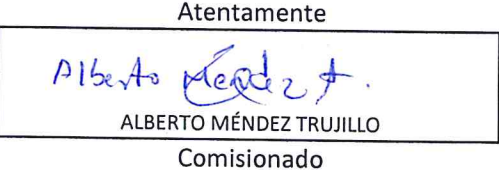 Atentamente
Alberto Méndez T.
ALBERTO MÉNDEZ TRUJILLO
Comisionado